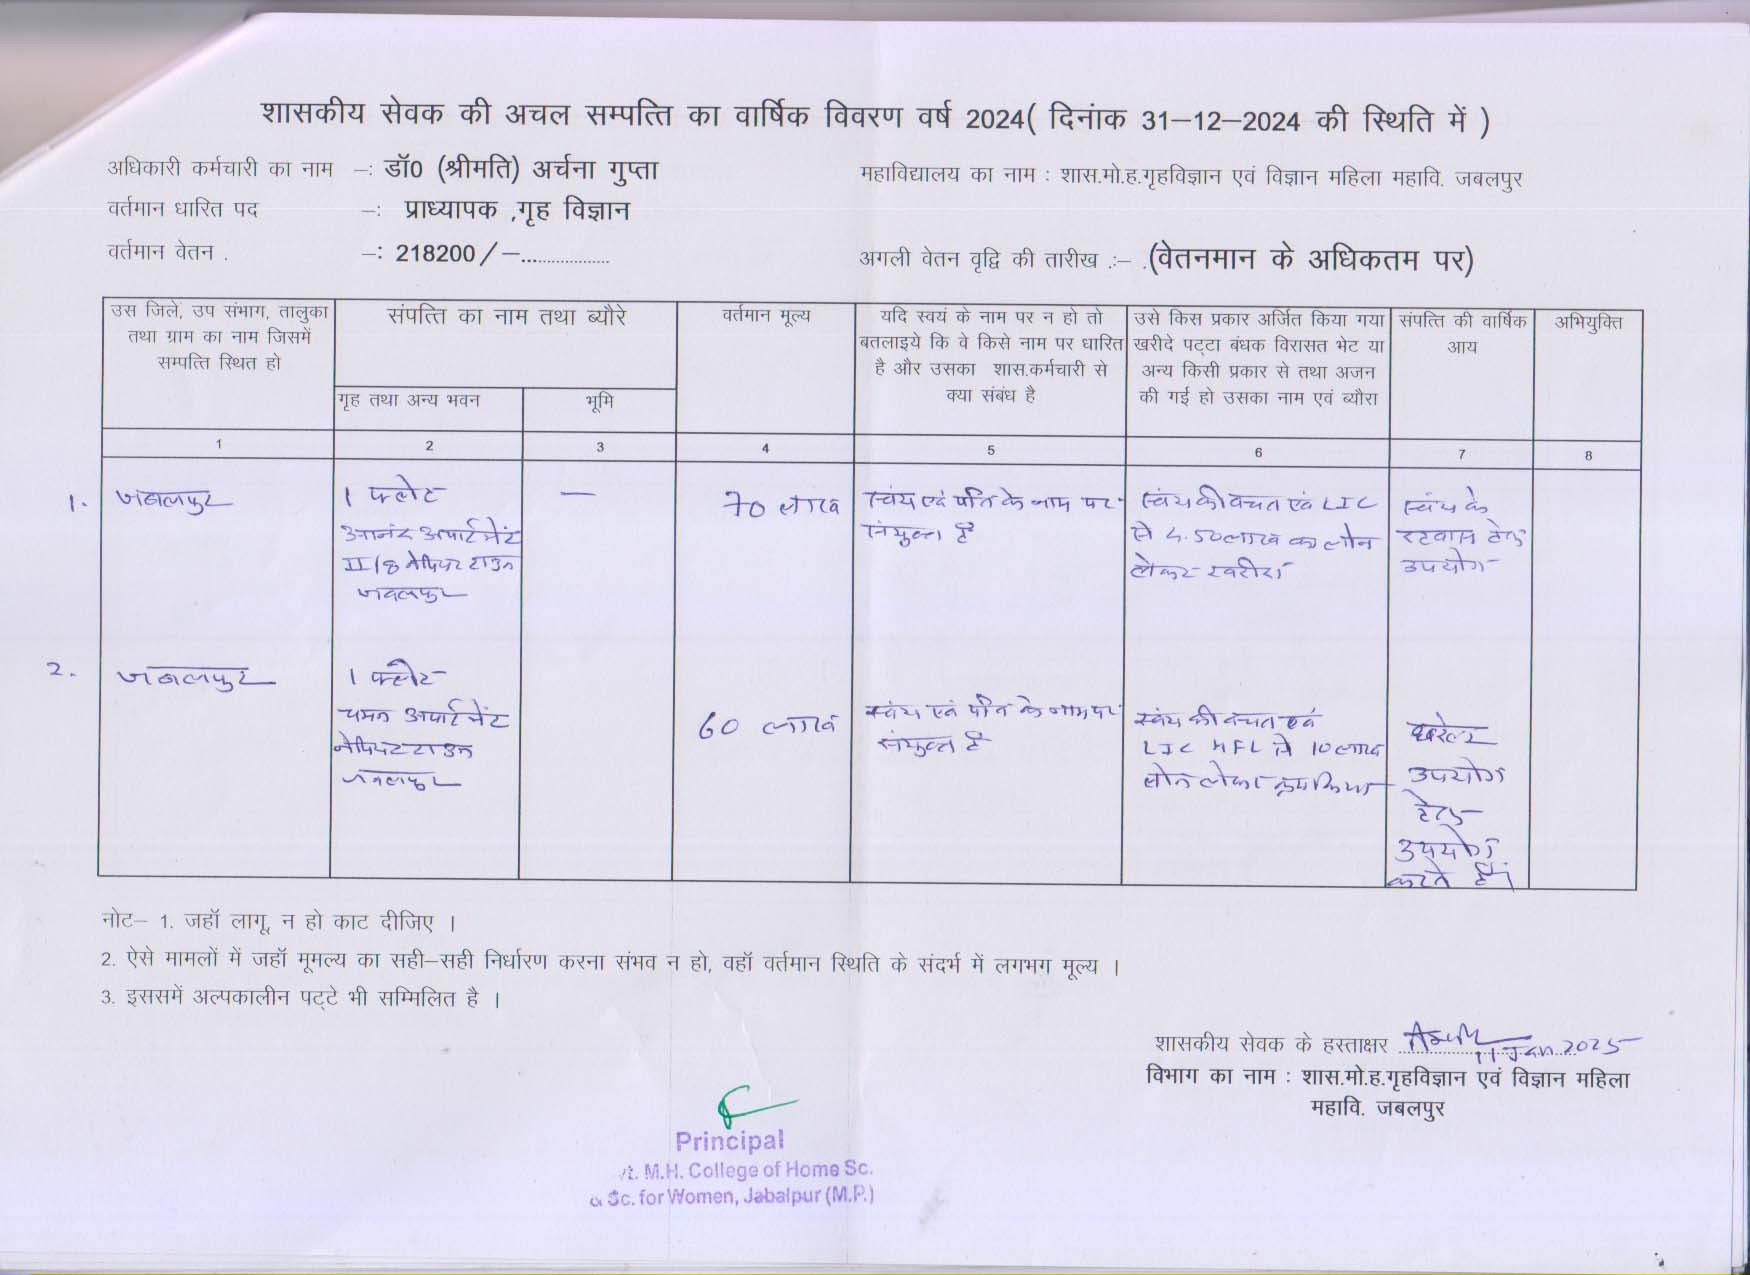 शासकीय सेवक की अचल सम्पत्ति का वार्षिक विवरण वर्ष 2024( दिनांक 31–12–2024 की स्थिति में )
अधिकारी कर्मचारी का नाम –: डॉ0 (श्रीमति) अर्चना गुप्ता
महाविद्यालय का नाम : शास.मो.ह.गृहविज्ञान एवं विज्ञान महिला महावि. जबलपुर
वर्तमान धारित पद –: प्राध्यापक ,गृह विज्ञान
वर्तमान वेतन . –: 218200/–..................
अगली वेतन वृद्वि की तारीख :– .(वेतनमान के अधिकतम पर)
उस जिले, उप संभाग, तालुका
तथा ग्राम का नाम जिसमें
सम्पत्ति स्थित हो
संपत्ति का नाम तथा ब्यौरे
गृह तथा अन्य भवन
भूमि
वर्तमान मूल्य
यदि स्वयं के नाम पर न हो तो
बतलाइये कि वे किसे नाम पर धारित
है और उसका शास.कर्मचारी से
क्या संबंध है
उसे किस प्रकार अर्जित किया गया
खरीदे पट्टा बंधक विरासत भेट या
अन्य किसी प्रकार से तथा अजन
की गई हो उसका नाम एवं ब्यौरा
संपत्ति की वार्षिक
आय
अभियुक्ति
1 2 3 4 5 6 7 8
1. जबलपुर
1 फ्लेट
आनंद अपार्टमेंट
II/8 नेपियर टाउन
जबलपुर
—
70 लाख
स्वंय एवं पति के नाम पर
संयुक्त है
स्वंय की बचत एवं LIC
से 4.50लाख का लोन
लेकर खरीदा
स्वंय के
रहवास हेतु
उपयोग
2. जबलपुर
1 फ्लेट
चमन अपार्टमेंट
नेपियर टाउन
जबलपुर
60 लाख
स्वंय एवं पति के नाम पर
संयुक्त है
स्वंय की बचत एवं
LIC HFL से 10 लाख
लोन लेकर क्रय किया
घरेलू
उपयोग
हेतु
उपयोग
करते हैं।
नोट– 1. जहॉ लागू, न हो काट दीजिए ।
2. ऐसे मामलों में जहॉ मूमल्य का सही–सही निर्धारण करना संभव न हो, वहॉ वर्तमान स्थिति के संदर्भ में लगभग मूल्य ।
3. इससमें अल्पकालीन पट्टे भी सम्मिलित है ।
शासकीय सेवक के हस्ताक्षर
11 Jan 2025
विभाग का नाम : शास.मो.ह.गृहविज्ञान एवं विज्ञान महिला
महावि. जबलपुर
Principal
M.H. College of Home Sc.
& Sc. for Women, Jabalpur (M.P.)